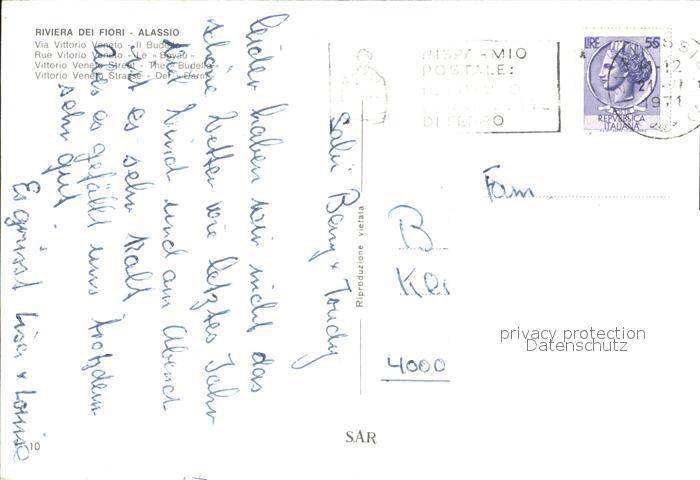 RIVIERA DEI FIORI - ALASSIO
Via Vittorio Veneto - Il Budello
Rue Vittorio Veneto - Le « Boyau »
Vittorio Veneto Street - The « Budello
Vittorio Veneto Strasse - Der « Darm
Salü Beny + Trudy
leider haben wir nicht das
schöne Wetter wie letztes Jahr
Wind und am Abend
ist es sehr kalt
es gefällt uns trotzdem
sehr gut
Es grüsst Lisa + Louise
10
Riproduzione vietata
SAR
RISPARMIO
POSTALE:
DI FERRO
LIRE 55
REPVBBLICA
ITALIANA
-12
21
1971
Fam
B
4000
privacy protection
Datenschutz